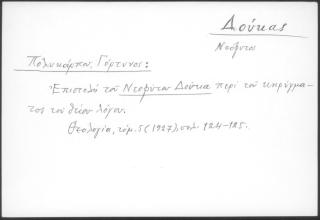 Δούκας
Νεόφυτος
Πολυκάρπου, Γόρτυνος:
Ἐπιστολὴ τοῦ Νεοφύτου Δούκα περὶ τοῦ κηρύγμα-
τος τοῦ θείου λόγου.
Θεολογία, τόμ. 5 (1927), σελ. 124-125.